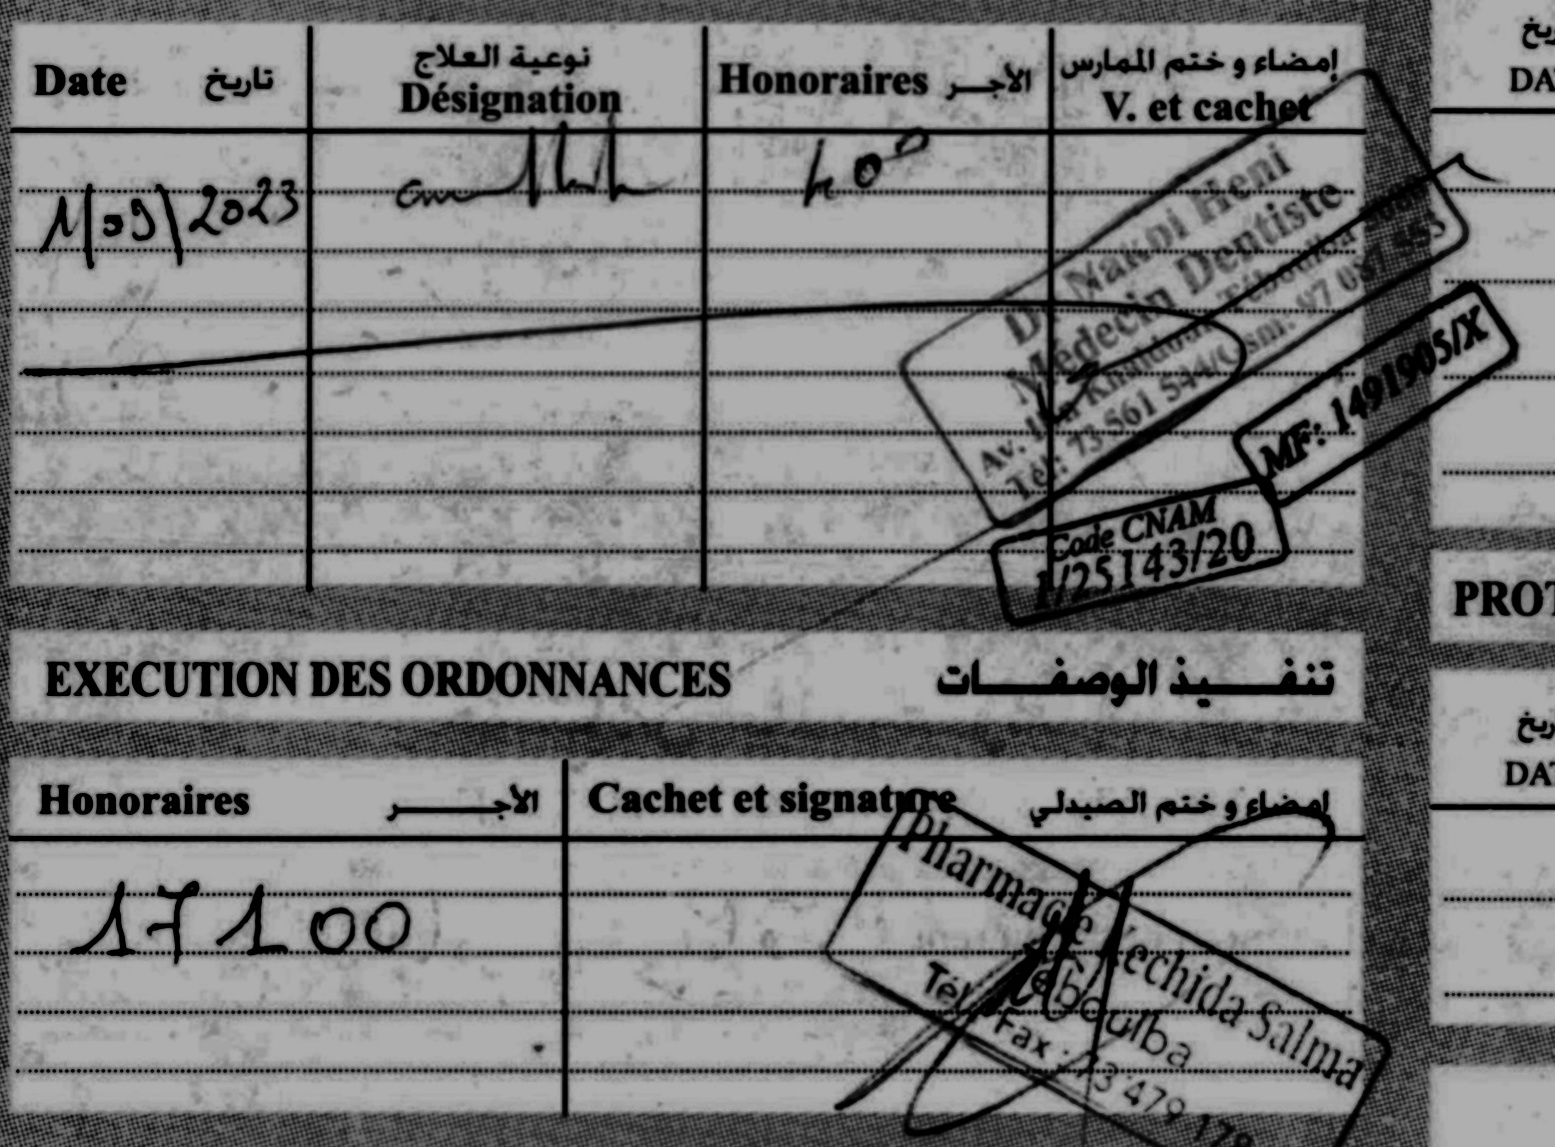 Date تاريخ
نوعية العلاج
Désignation
Honoraires الأجر
إمضاء و ختم الممارس
V. et cachet
1/09/2023
40
Heni
Médecin Dentiste
Av. Ibn Khaldoun Téboulba
Tél: 73 561 544/Gsm: 97 087 553
MF: 1491905/X
Code CNAM
1/25143/20
EXECUTION DES ORDONNANCES تنفيذ الوصفات
Honoraires الأجر
Cachet et signature إمضاء و ختم الصيدلي
17100
Pharmacie Kechida Salma
Téboulba
Tél Fax : 73 479 178
تاريخ
DA
PROT
تاريخ
DAT